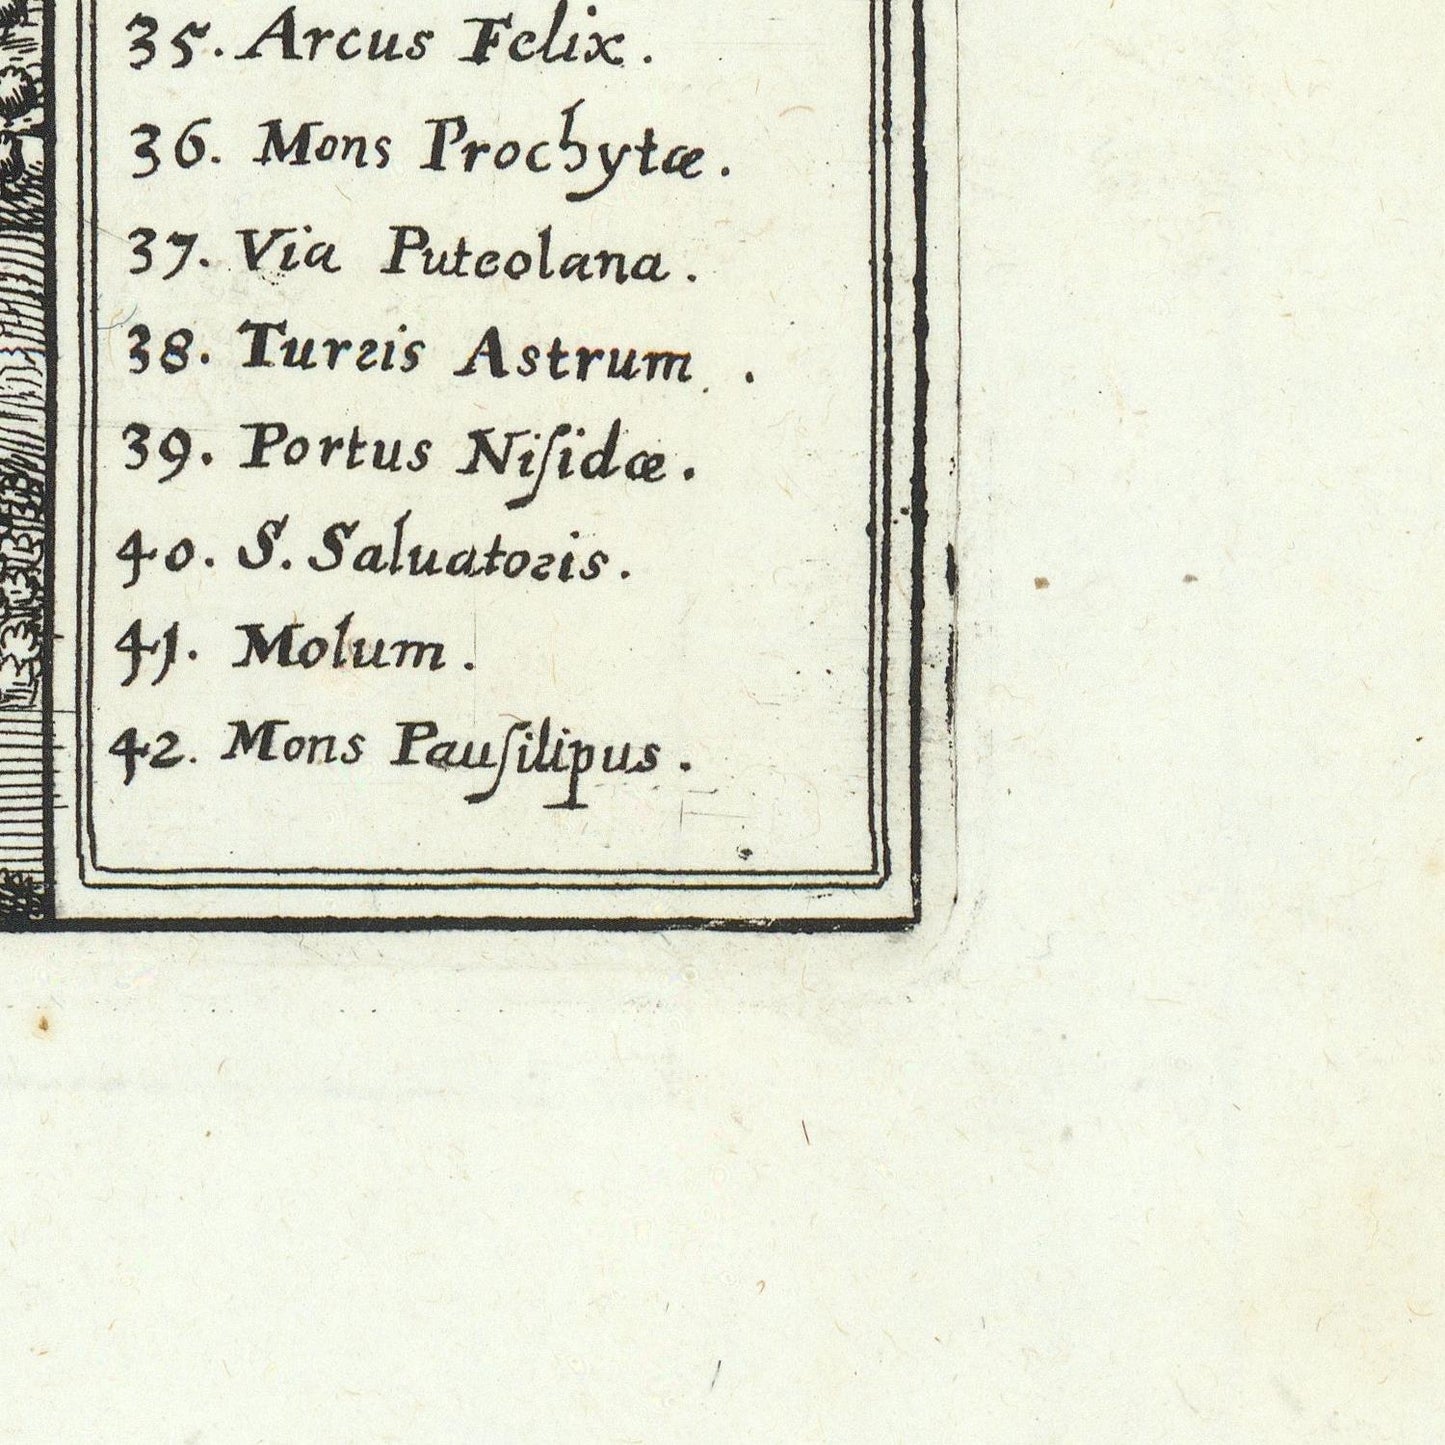 35. Arcus Felix.
36. Mons Prochytæ.
37. Via Puteolana.
38. Turris Astrum.
39. Portus Niſidæ.
40. S. Saluatoris.
41. Molum.
42. Mons Pauſilipus.